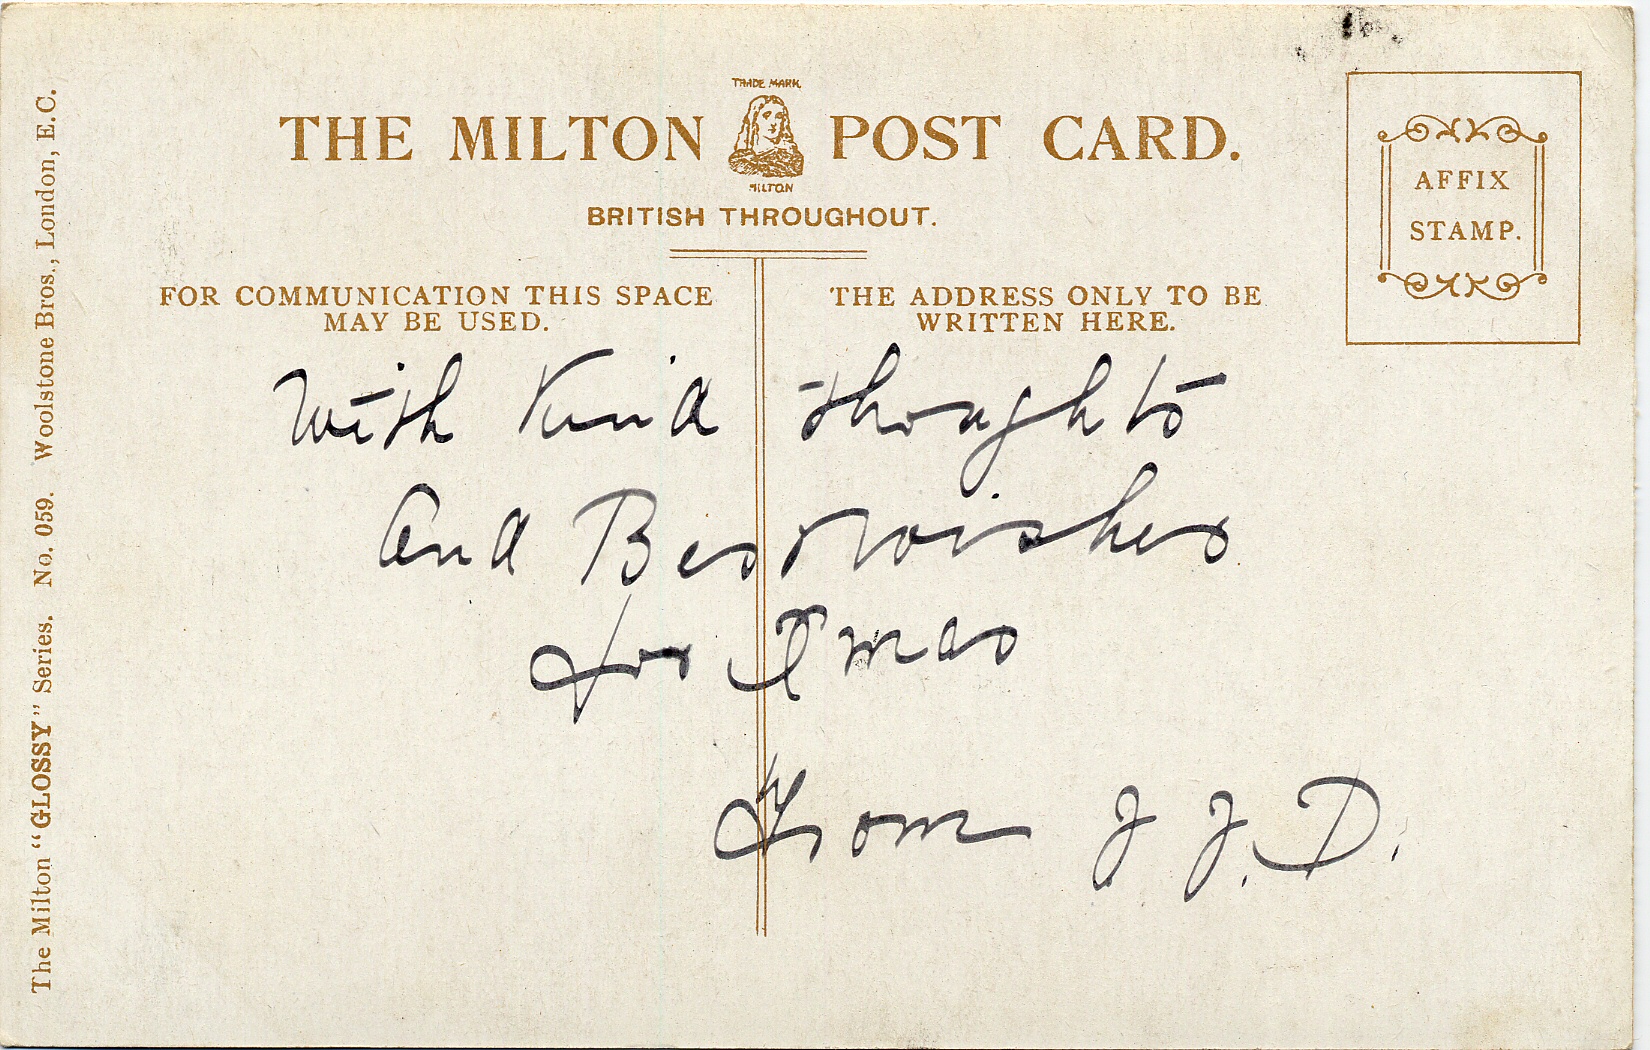 TRADE MARK
THE MILTON POST CARD.
MILTON
BRITISH THROUGHOUT.
AFFIX
STAMP.
FOR COMMUNICATION THIS SPACE
MAY BE USED.
THE ADDRESS ONLY TO BE
WRITTEN HERE.
With Kind thoughts
And Best wishes
for Xmas
From J. J. D.
The Milton "GLOSSY" Series. No. 059. Woolstone Bros., London, E.C.